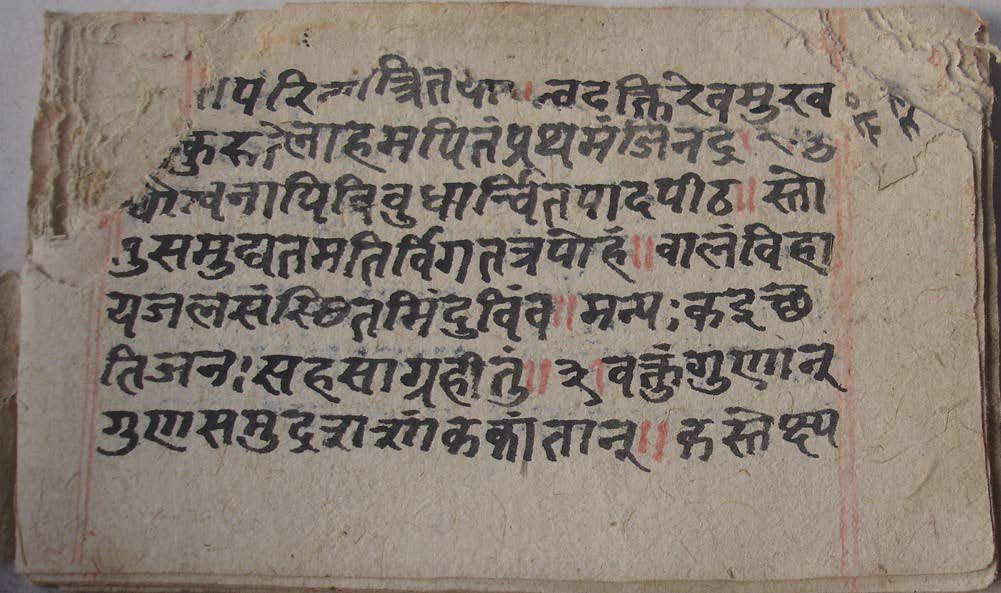 त्वदक्तिरेवमुख
लाहमपितंप्रथमंजिनद्र
नापिविवुधार्च्चितपादपीठ॥ स्तो
समुद्यतमतिर्विगतत्रपोहं॥ वालंविहा
यजलसंस्थितमिंदुविंव॥ मन्यःकइच्छ
तिजनःसहसाग्रहीतुं॥ ३।वक्तुंगुणान्
गुणसमुद्रशशांककांतान्॥ कस्तेक्ष्य